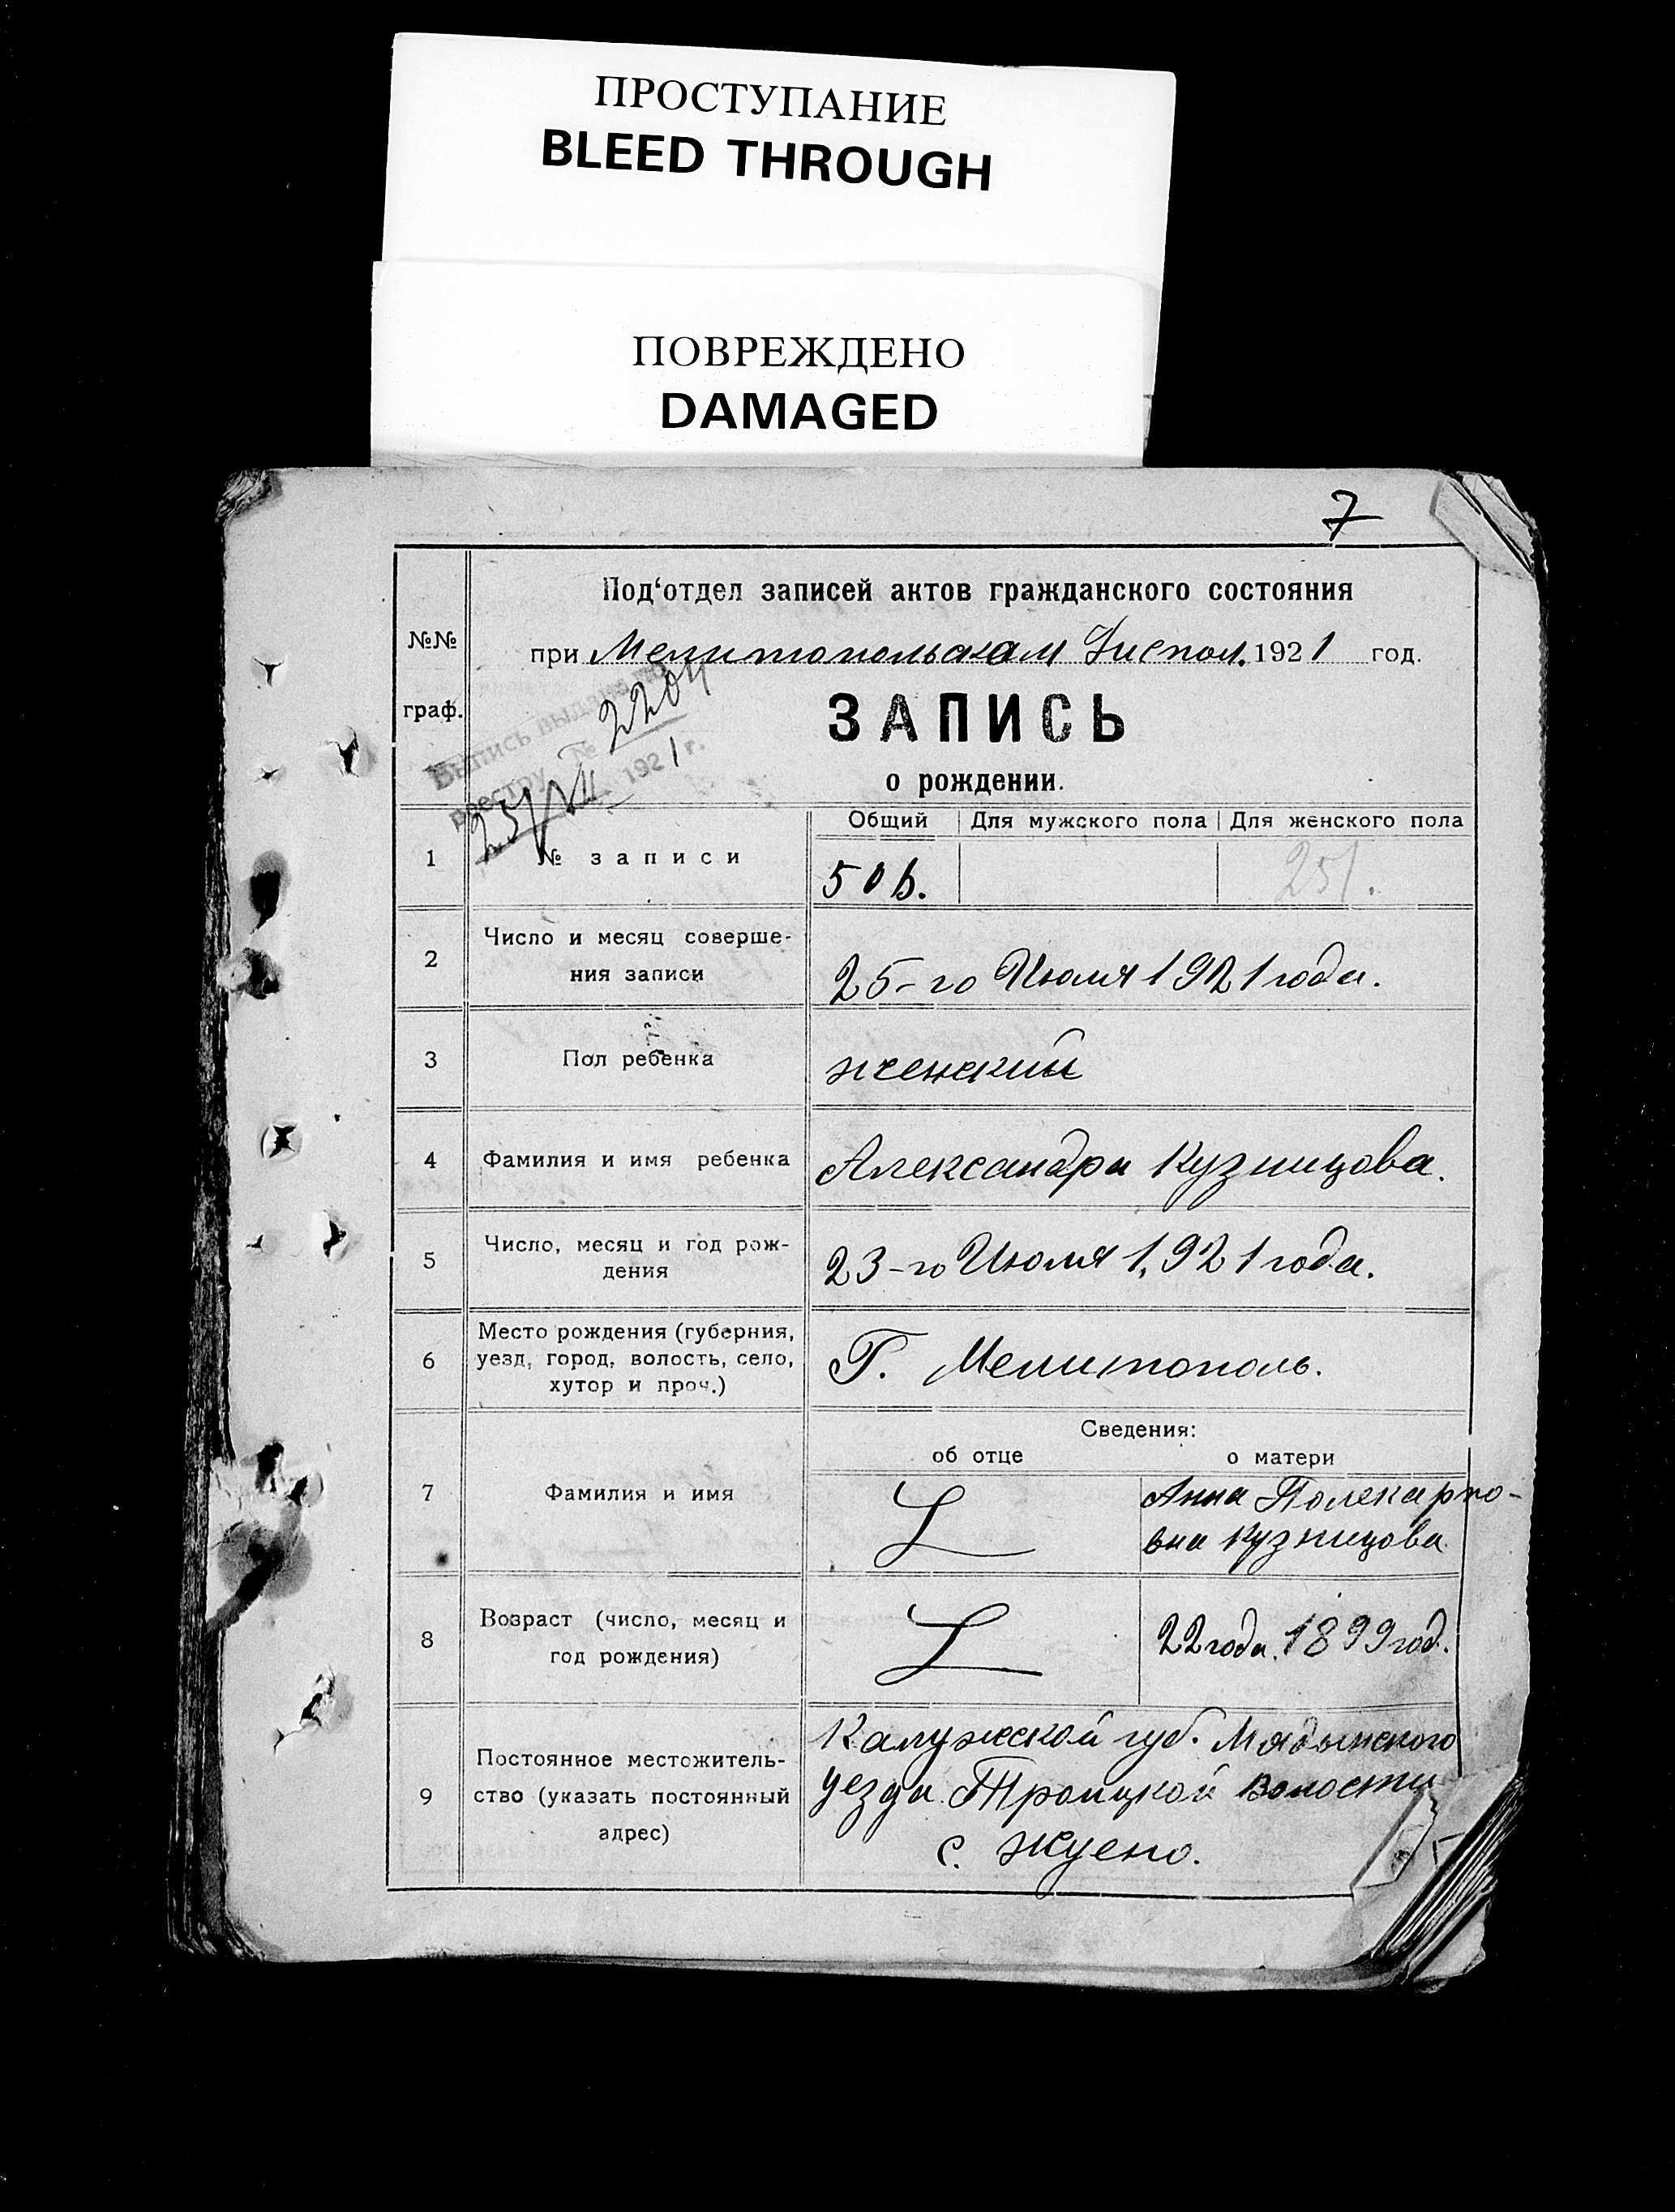 ПРОСТУПАНИЕ
BLEED THROUGH
ПОВРЕЖДЕНО
DAMAGED
7
Под‘отдел записей актов гражданского состояния
№№
при Мелитопольском Уиспол. 1921 год.
граф.
ЗАПИСЬ
о рождении.
Выпись выдана по
реестру № 2204
25/VII 1921 г.
Общий Для мужского пола Для женского пола
1 № записи 506. 251.
2 Число и месяц соверше-
ния записи 25-го Июля 1921 года.
3 Пол ребенка женский
4 Фамилия и имя ребенка Александра Кузницова.
5 Число, месяц и год рож-
дения 23-го Июля 1921 года.
6 Место рождения (губерния,
уезд, город, волость, село,
хутор и проч.) Г. Мелитополь.
Сведения:
об отце о матери
7 Фамилия и имя Анна Полекарпо-
вна Кузницова
8 Возраст (число, месяц и
год рождения) 22 года. 1899 год.
9 Постоянное местожитель-
ство (указать постоянный
адрес)
Калужской губ. Мядынского
уезда Троицкой волости
с.